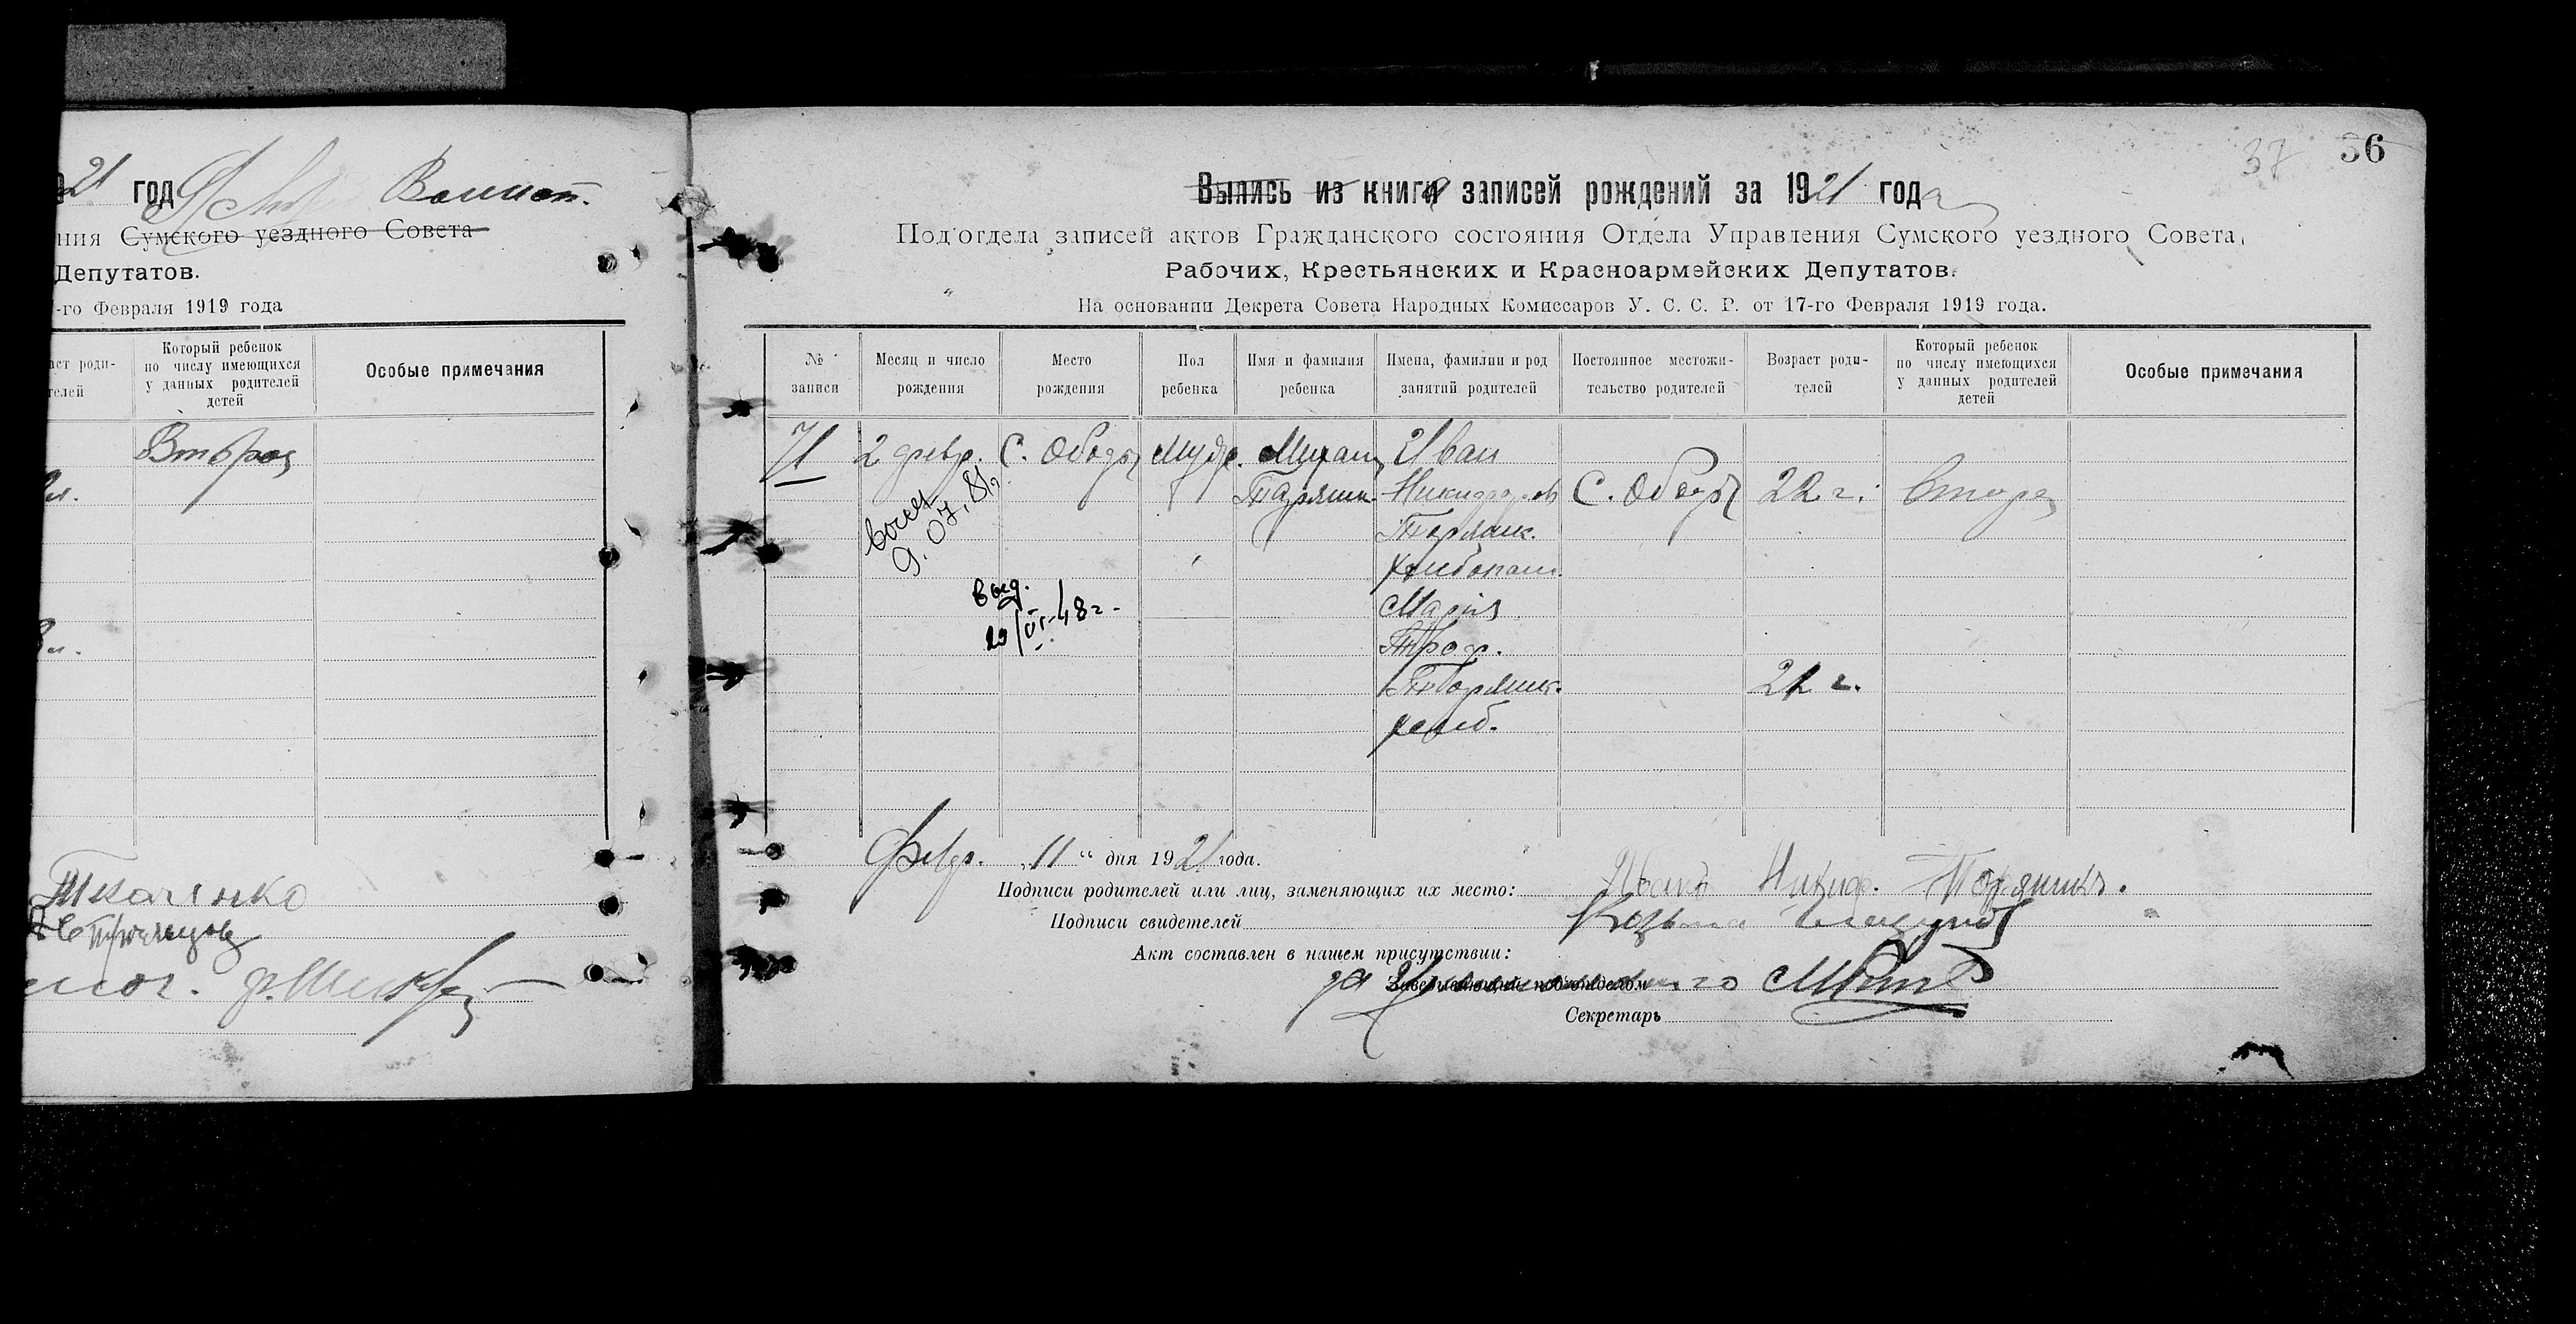 21 год Волист.
ния Сумского уездного Совета
Депутатов.
-го Февраля 1919 года
аст роди-
телей
Который ребенок
по числу имеющихся
у данных родителей
детей
Особые примечания
Второй
Ткаченко
36
37
Выпись из книги записей рождений за 1921 года
Подотдела записей актов Гражданского состояния Отдела Управления Сумского уездного Совета,
Рабочих, Крестьянских и Красноармейских Депутатов.
На основании Декрета Совета Народных Комиссаров У. С. С. Р. от 17-го Февраля 1919 года.
№
записи
Месяц и число
рождения
Место
рождения
Пол
ребенка
Имя и фамилия
ребенка
Имена, фамилии и род
занятий родителей
Постоянное местожи-
тельство родителей
Возраст роди-
телей
Который ребенок
по числу имеющихся
у данных родителей
детей
Особые примечания
71
2 февр.
С. Ободы
Муж.
Михаил
Торяник
Иван
Никифоров
Торяник.
хлебопаш.
Мария
Троф.
Торяник.
хлеб.
С. Ободы
22 г.
21 г.
второй
9.07.81г.
выд.
29/VI-48г.
Февр. „11“ дня 1921 года.
Подписи родителей или лиц, заменяющих их место: Иван Никиф. Торяник.
Подписи свидетелей Козьма
Акт составлен в нашем присутствии:
за
Заведывающий подотделом
Секретарь